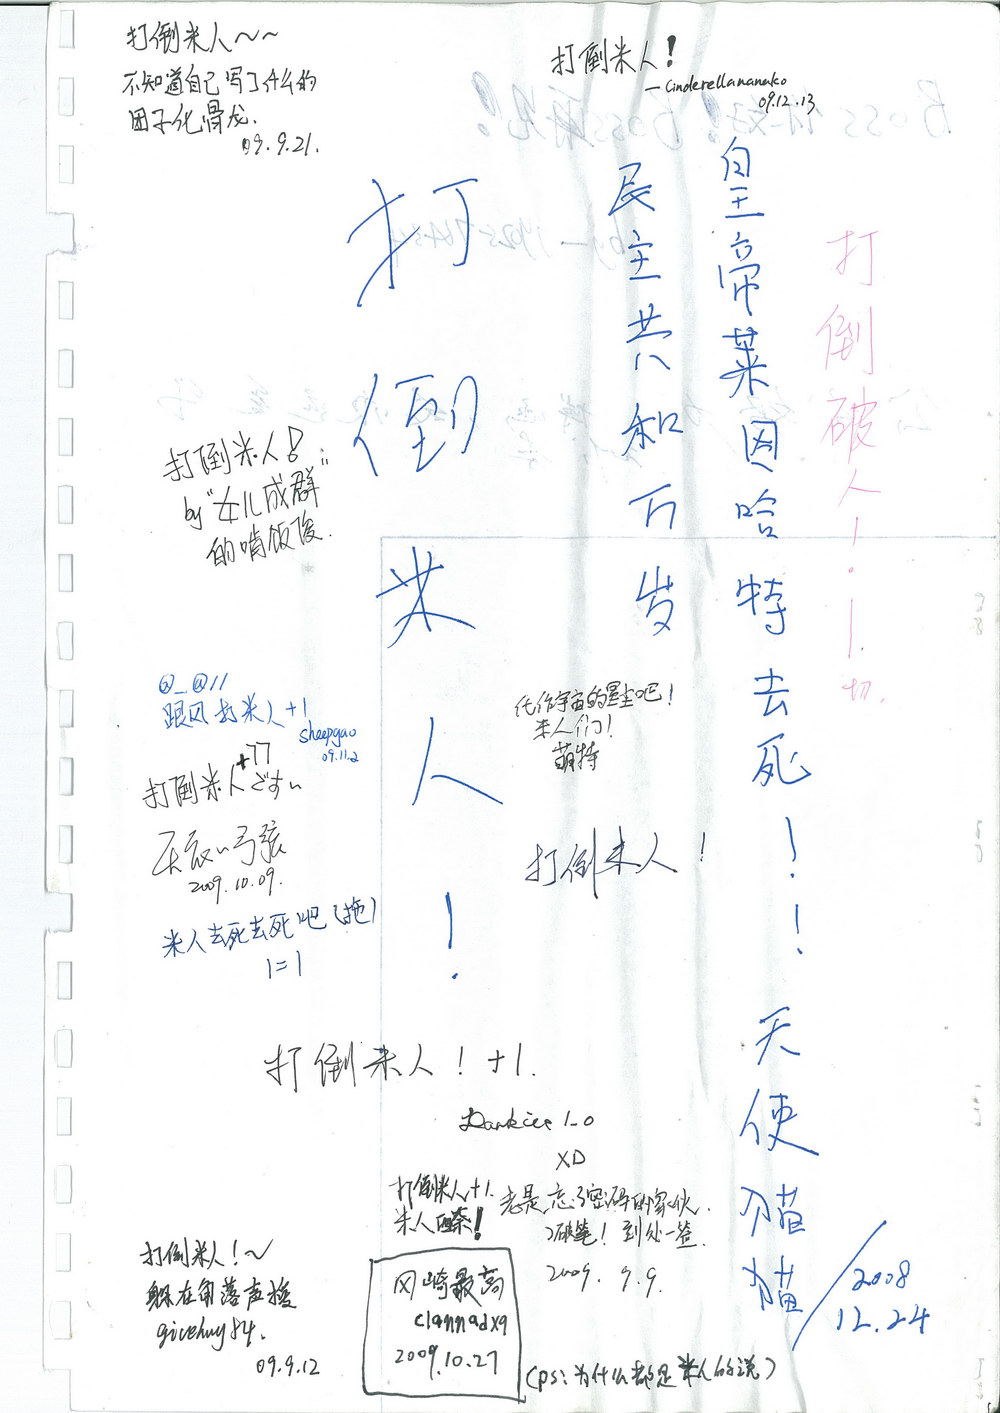 打倒米人～～
不知道自己写了什么的
团子化骨龙.
09.9.21.
打倒米人！
—Cinderellananako
09.12.13
打倒破人！.一切.
皇帝莱因哈特去死！！
天使猫猫
2008
12.24
民主共和万岁
打倒米人！
打倒米人！
by"女儿成群"
的啃饭俊.
@_@//
跟风打米人+1
sheepgao
09.11.2
打倒米人+77
ごすぃ
2009.10.09.
米人去死去死吧(拖)
1=1
化作宇宙的星尘吧！
米人们！
萌特
打倒米人！
打倒米人！+1.
XD
打倒米人+1.
老是忘了密码的家伙.
到处签.
2009. 9.9.
打倒米人！～
躲在角落声援
09.9.12
冈崎最高
clannadxq
2009.10.27
(ps:为什么都是米人的说)